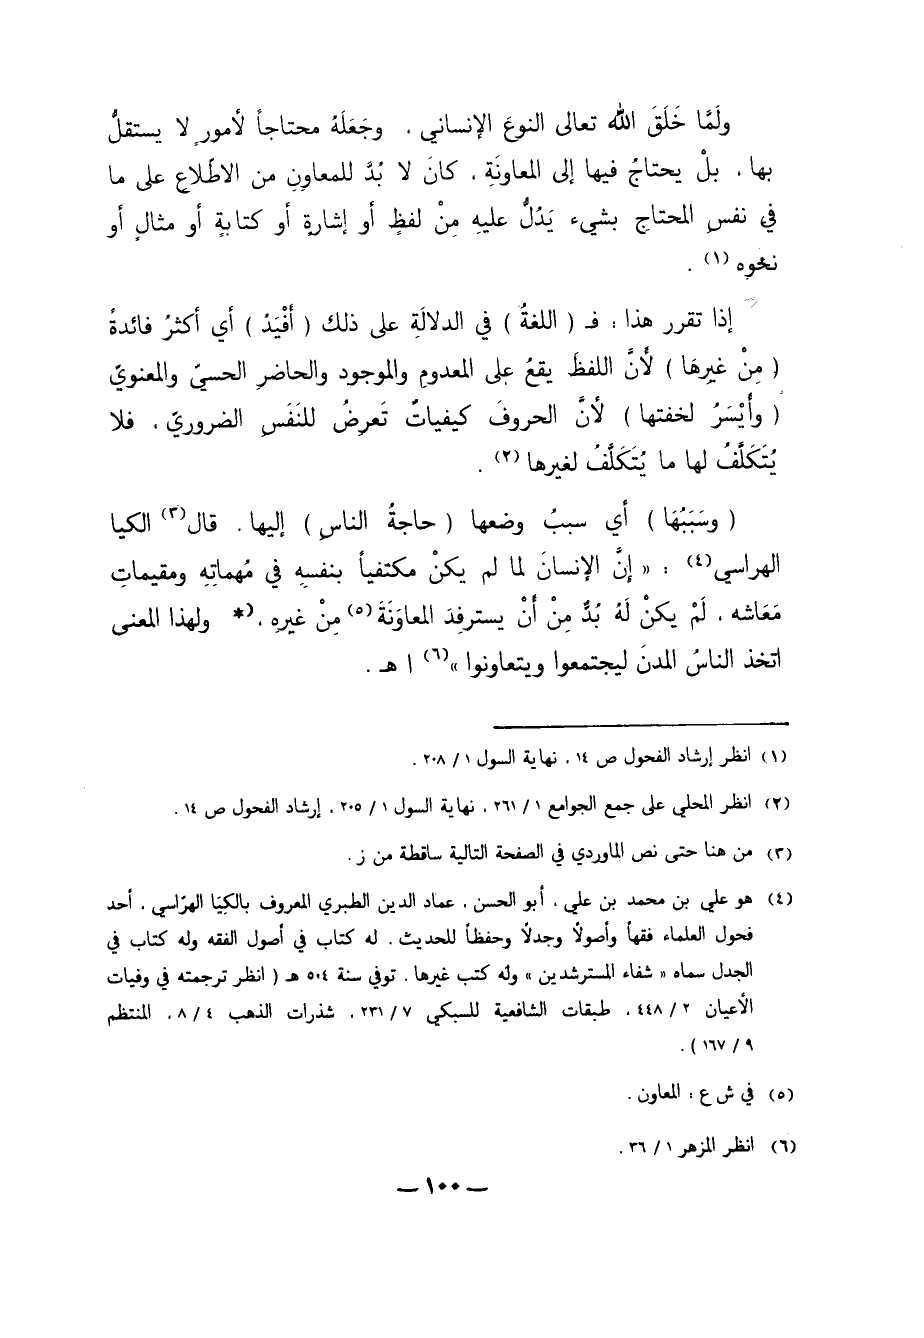 ولَمَّا خَلَقَ الله تعالى النوعَ الإنساني ، وجَعَلَهُ محتاجاً لأمورٍ لا يستقلُّ
بها ، بلْ يحتاجُ فيها إلى المعاونَةِ ، كانَ لا بُدَّ للمعاونِ من الاطّلاعِ على ما
في نفسِ المحتاجِ بشيء يَدُلُّ عليهِ مِنْ لفظٍ أو إشارةٍ أو كتابةٍ أو مثالٍ أو
نحوِه (١) .
إذا تقرر هذا : فـ ( اللغةُ ) في الدلالَةِ على ذلك ( أَفْيَدُ ) أي أكثرُ فائدةً
( مِنْ غيرِهَا ) لأَنَّ اللفظَ يقعُ على المعدومِ والموجودِ والحاضرِ الحسيّ والمعنويّ
( وأَيْسَرُ لخفتها ) لأنَّ الحروفَ كيفياتٌ تَعرِضُ للنَفَسِ الضروريّ ، فلا
يُتَكَلَّفُ لها ما يُتَكَلَّفُ لغيرها (٢) .
( وسَبَبُهَا ) أي سببُ وضعها ( حاجةُ الناسِ ) إليها . قال(٣) الكيا
الهراسي(٤) : « إنَّ الإنسانَ لما لم يكنْ مكتفياً بنفسهِ في مُهماتِهِ ومقيماتِ
مَعَاشه ، لَمْ يكنْ لَهُ بُدٌّ مِنْ أَنْ يسترفِدَ المعاوَنَةَ(٥) مِنْ غيرهِ ،(* ولهذا المعنى
اتخذ الناسُ المدنَ ليجتمعوا ويتعاونوا »(٦) ا هـ .
(١) انظر إرشاد الفحول ص ١٤ ، نهاية السول ١ / ٢٠٨ .
(٢) انظر المحلي على جمع الجوامع ١ / ٢٦١ ، نهاية السول ١ / ٢٠٥ ، إرشاد الفحول ص ١٤ .
(٣) من هنا حتى نص الماوردي في الصفحة التالية ساقطة من ز .
(٤) هو علي بن محمد بن علي ، أبو الحسن ، عماد الدين الطبري المعروف بالكِيَا الهرّاسي ، أحد
فحول العلماء فقهاً وأصولاً وجدلاً وحفظاً للحديث . له كتاب في أصول الفقه وله كتاب في
الجدل سماه « شفاء المسترشدين » وله كتب غيرها . توفي سنة ٥٠٤ هـ ( انظر ترجمته في وفيات
الأعيان ٢ / ٤٤٨ ، طبقات الشافعية للسبكي ٧ / ٢٣١ ، شذرات الذهب ٤ / ٨ ، المنتظم
٩ / ١٦٧ ) .
(٥) في ش ع : المعاون .
(٦) انظر المزهر ١ / ٣٦ .
— ١٠٠ —